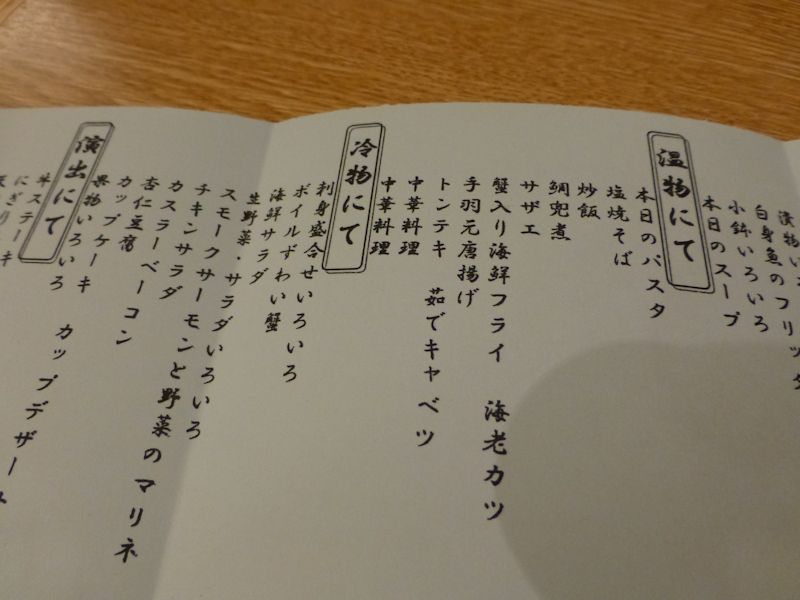 漬物いろ
白身魚のフリッタ
小鉢いろいろ
本日のスープ
温物にて
本日のパスタ
塩焼そば
炒飯
鯛兜煮
サザエ
蟹入り海鮮フライ 海老カツ
手羽元唐揚げ
トンテキ 茹でキャベツ
中華料理
中華料理
冷物にて
刺身盛合せいろいろ
ボイルずわい蟹
海鮮サラダ
生野菜・サラダいろいろ
スモークサーモンと野菜のマリネ
チキンサラダ
カスラーベーコン
杏仁豆腐
カップケーキ カップデザート
果物いろいろ
演出にて
牛ステーキ
にぎり